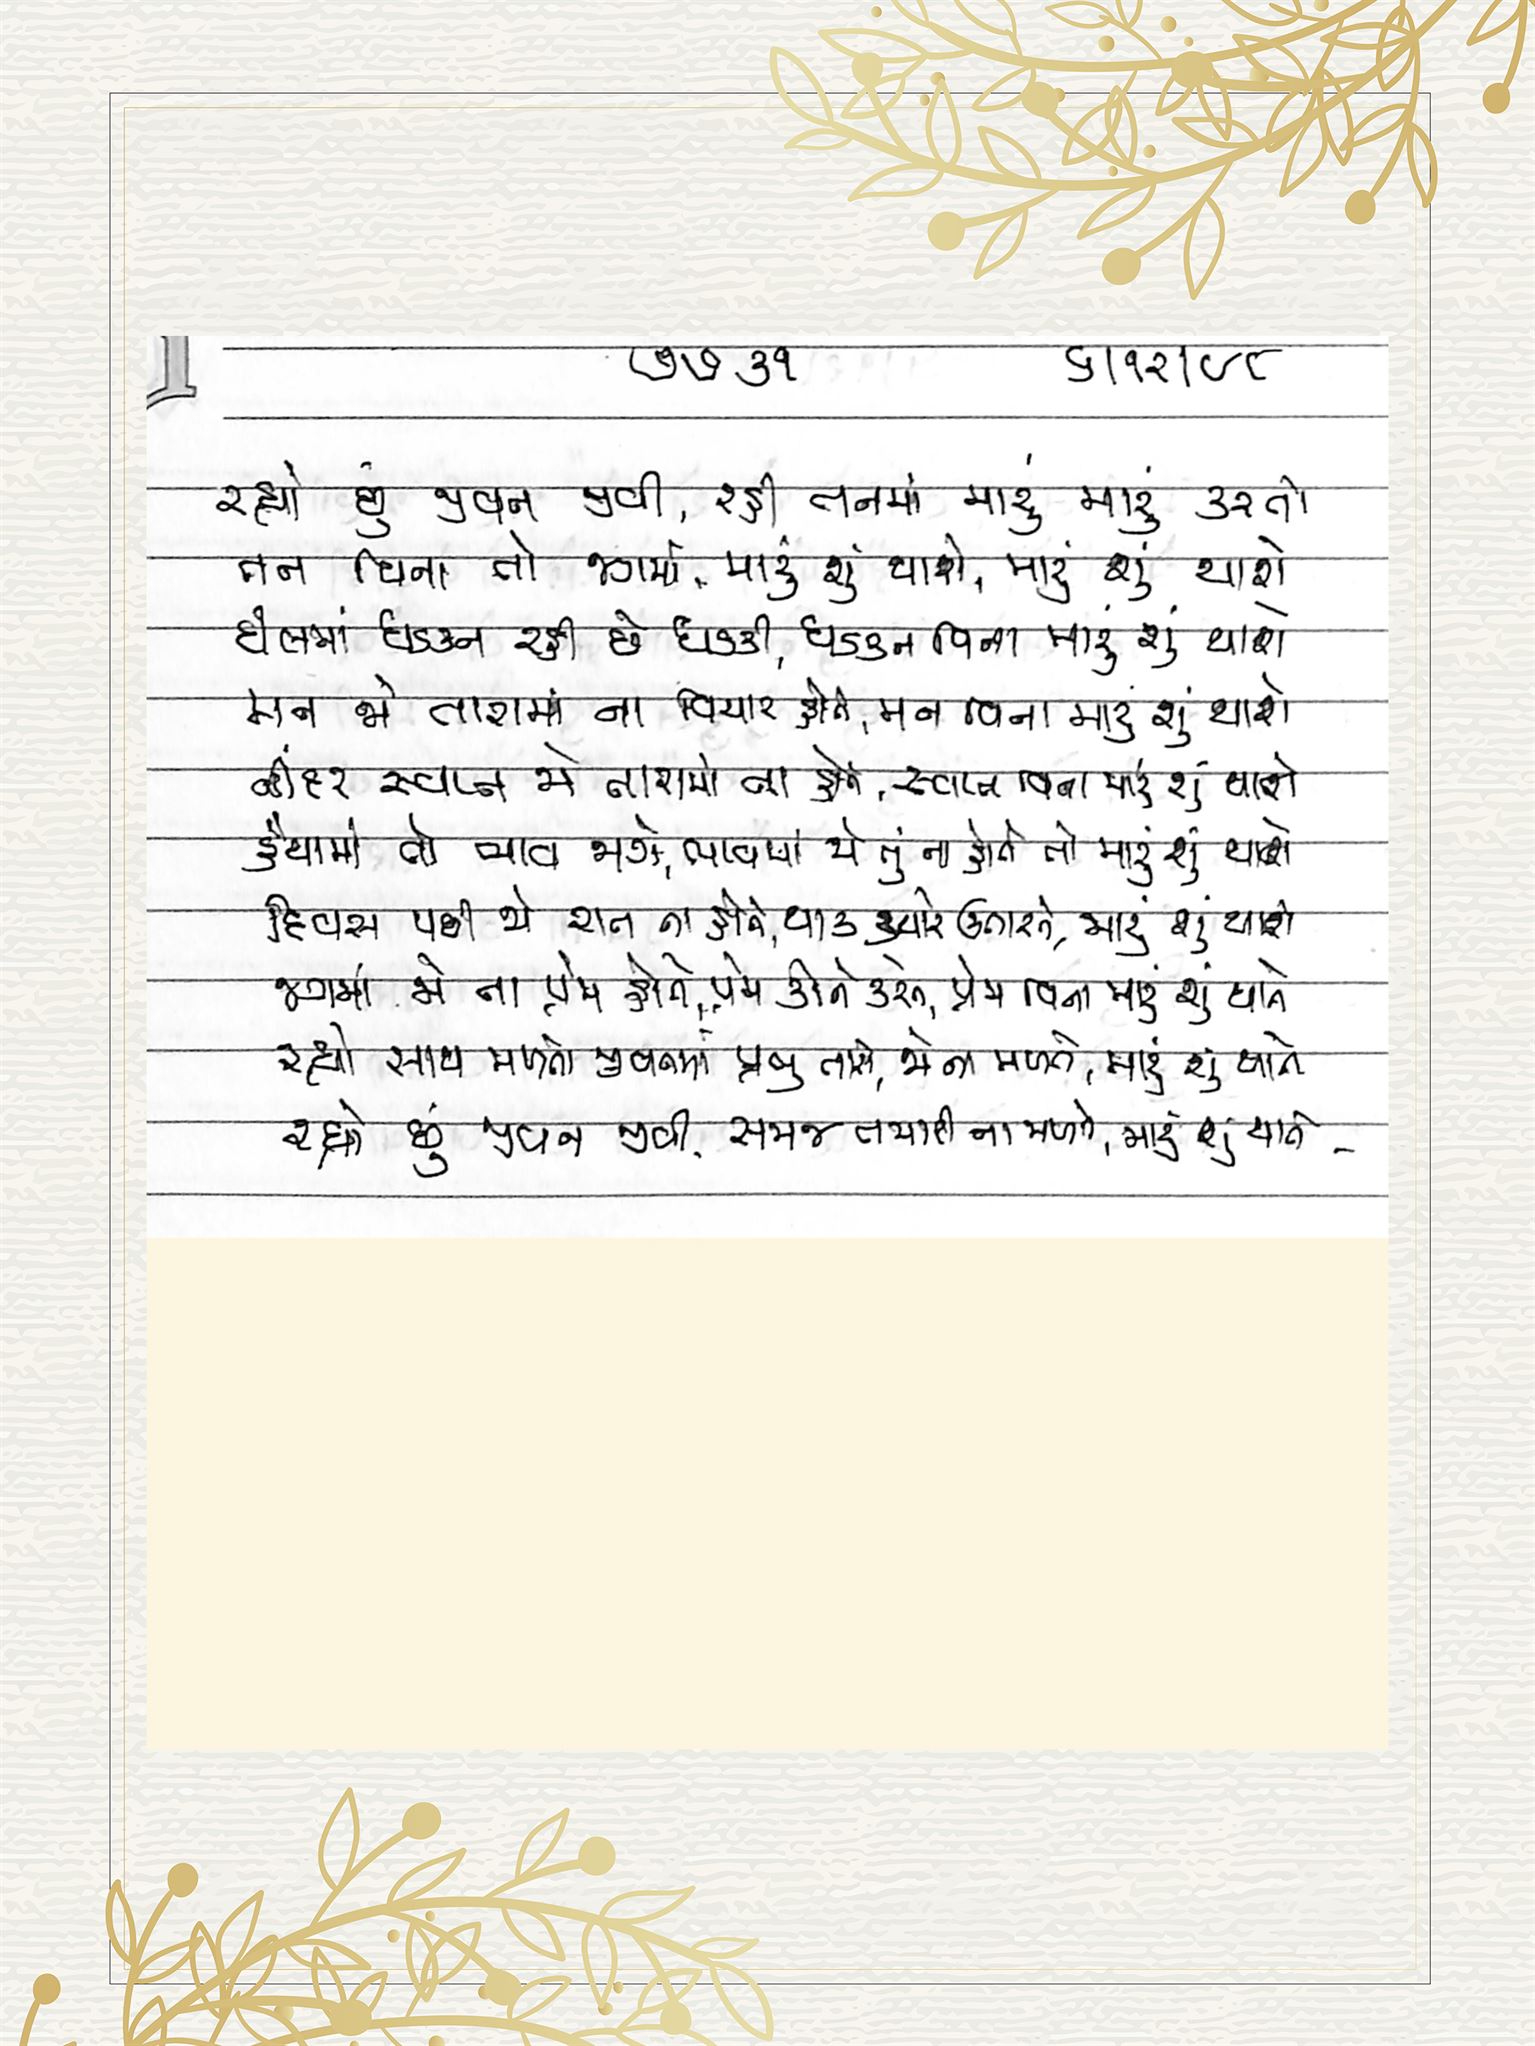 ૭૭૩૧ ૬।૧૨।૯૮
રહ્યો છું જીવન જીવી, રહી તનમાં મારું મારું કરતો
તન વિના તો જગમાં, મારું શું થાશે, મારું શું થાશે
દીલમાં ધડકન રહી છે ધડકી, ધડકન વિના મારું શું થાશે
મન જો તારામાં ના વિચાર હોતે, મન વિના મારું શું થાશે
સ્વપ્ન જો તારામાં ના હોતે, સ્વપ્ન વિના મારું શું થાશે
હૈયામાં તો ભાવ ભર્યો, ભાવમાં જો તું ના હોતે તો મારું શું થાશે
દિવસ પછી જો રાત ના હોતે, થાક ક્યારે ઉતારતે, મારું શું થાશે
જગમાં જો ના પ્રેમ હોતે, પ્રેમ કોને કરતે, પ્રેમ વિના મારું શું થાતે
રહ્યો સાથ મળતો જીવનમાં પ્રભુ તારો, જો ના મળતે, મારું શું થાતે
રહ્યો છું જીવન જીવી, સમજ તમારી ના મળતે, મારું શું થાતે -